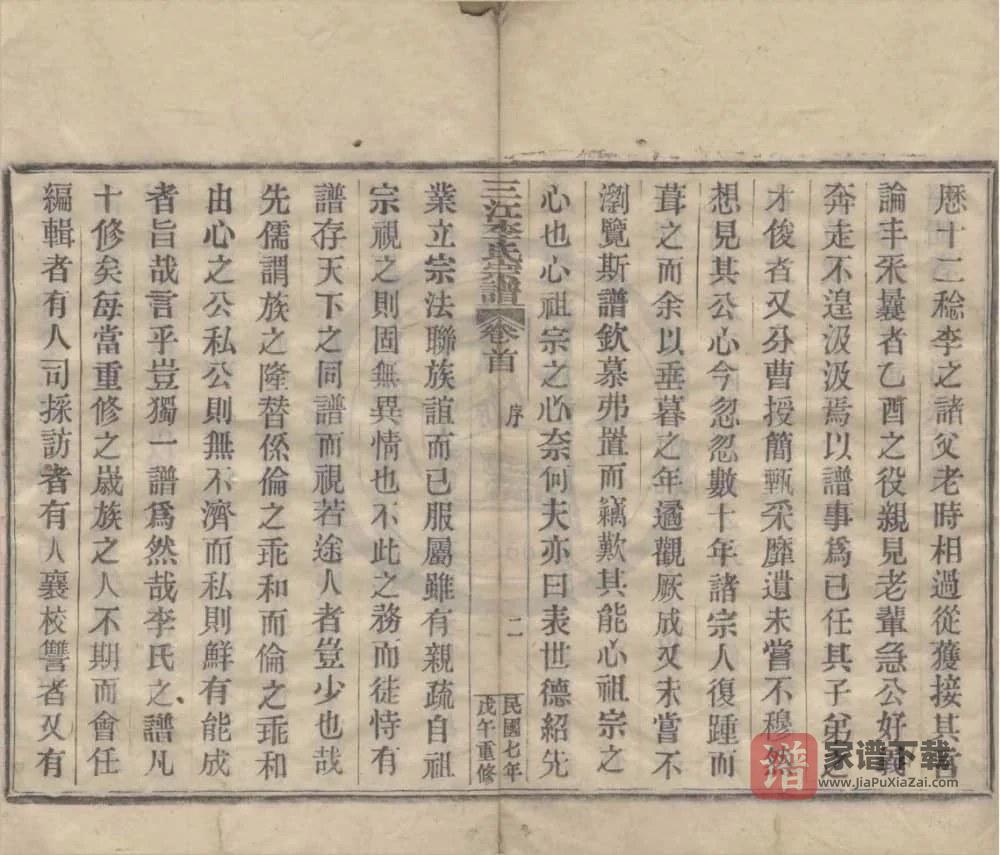 歷十二稔李之諸父老時相過從獲接其言
論丰采曩者乙酉之役親見老輩急公好義
奔走不遑汲汲焉以譜事爲已任其子弟之
才俊者又分曹授簡甄采靡遺未嘗不穆然
想見其公心今忽忽數十年諸宗人復踵而
葺之而余以垂暮之年遹觀厥成又未嘗不
瀏覽斯譜欽慕弗置而竊歎其能心祖宗之
心也心祖宗之心奈何夫亦曰表世德紹先
三江李氏宗譜 卷首 序 二 民國七年戊午重修
業立宗法聯族誼而已服屬雖有親疏自祖
宗視之則固無異情也不此之務而徒恃有
譜存天下之同譜而視若途人者豈少也哉
先儒謂族之隆替係倫之乖和而倫之乖和
由心之公私公則無不濟而私則鮮有能成
者旨哉言乎豈獨一譜爲然哉李氏之譜凡
十修矣每當重修之歲族之人不期而會任
編輯者有人司採訪者有人襄校讐者又有
譜 家谱下载
www.JiaPuXiaZai.com